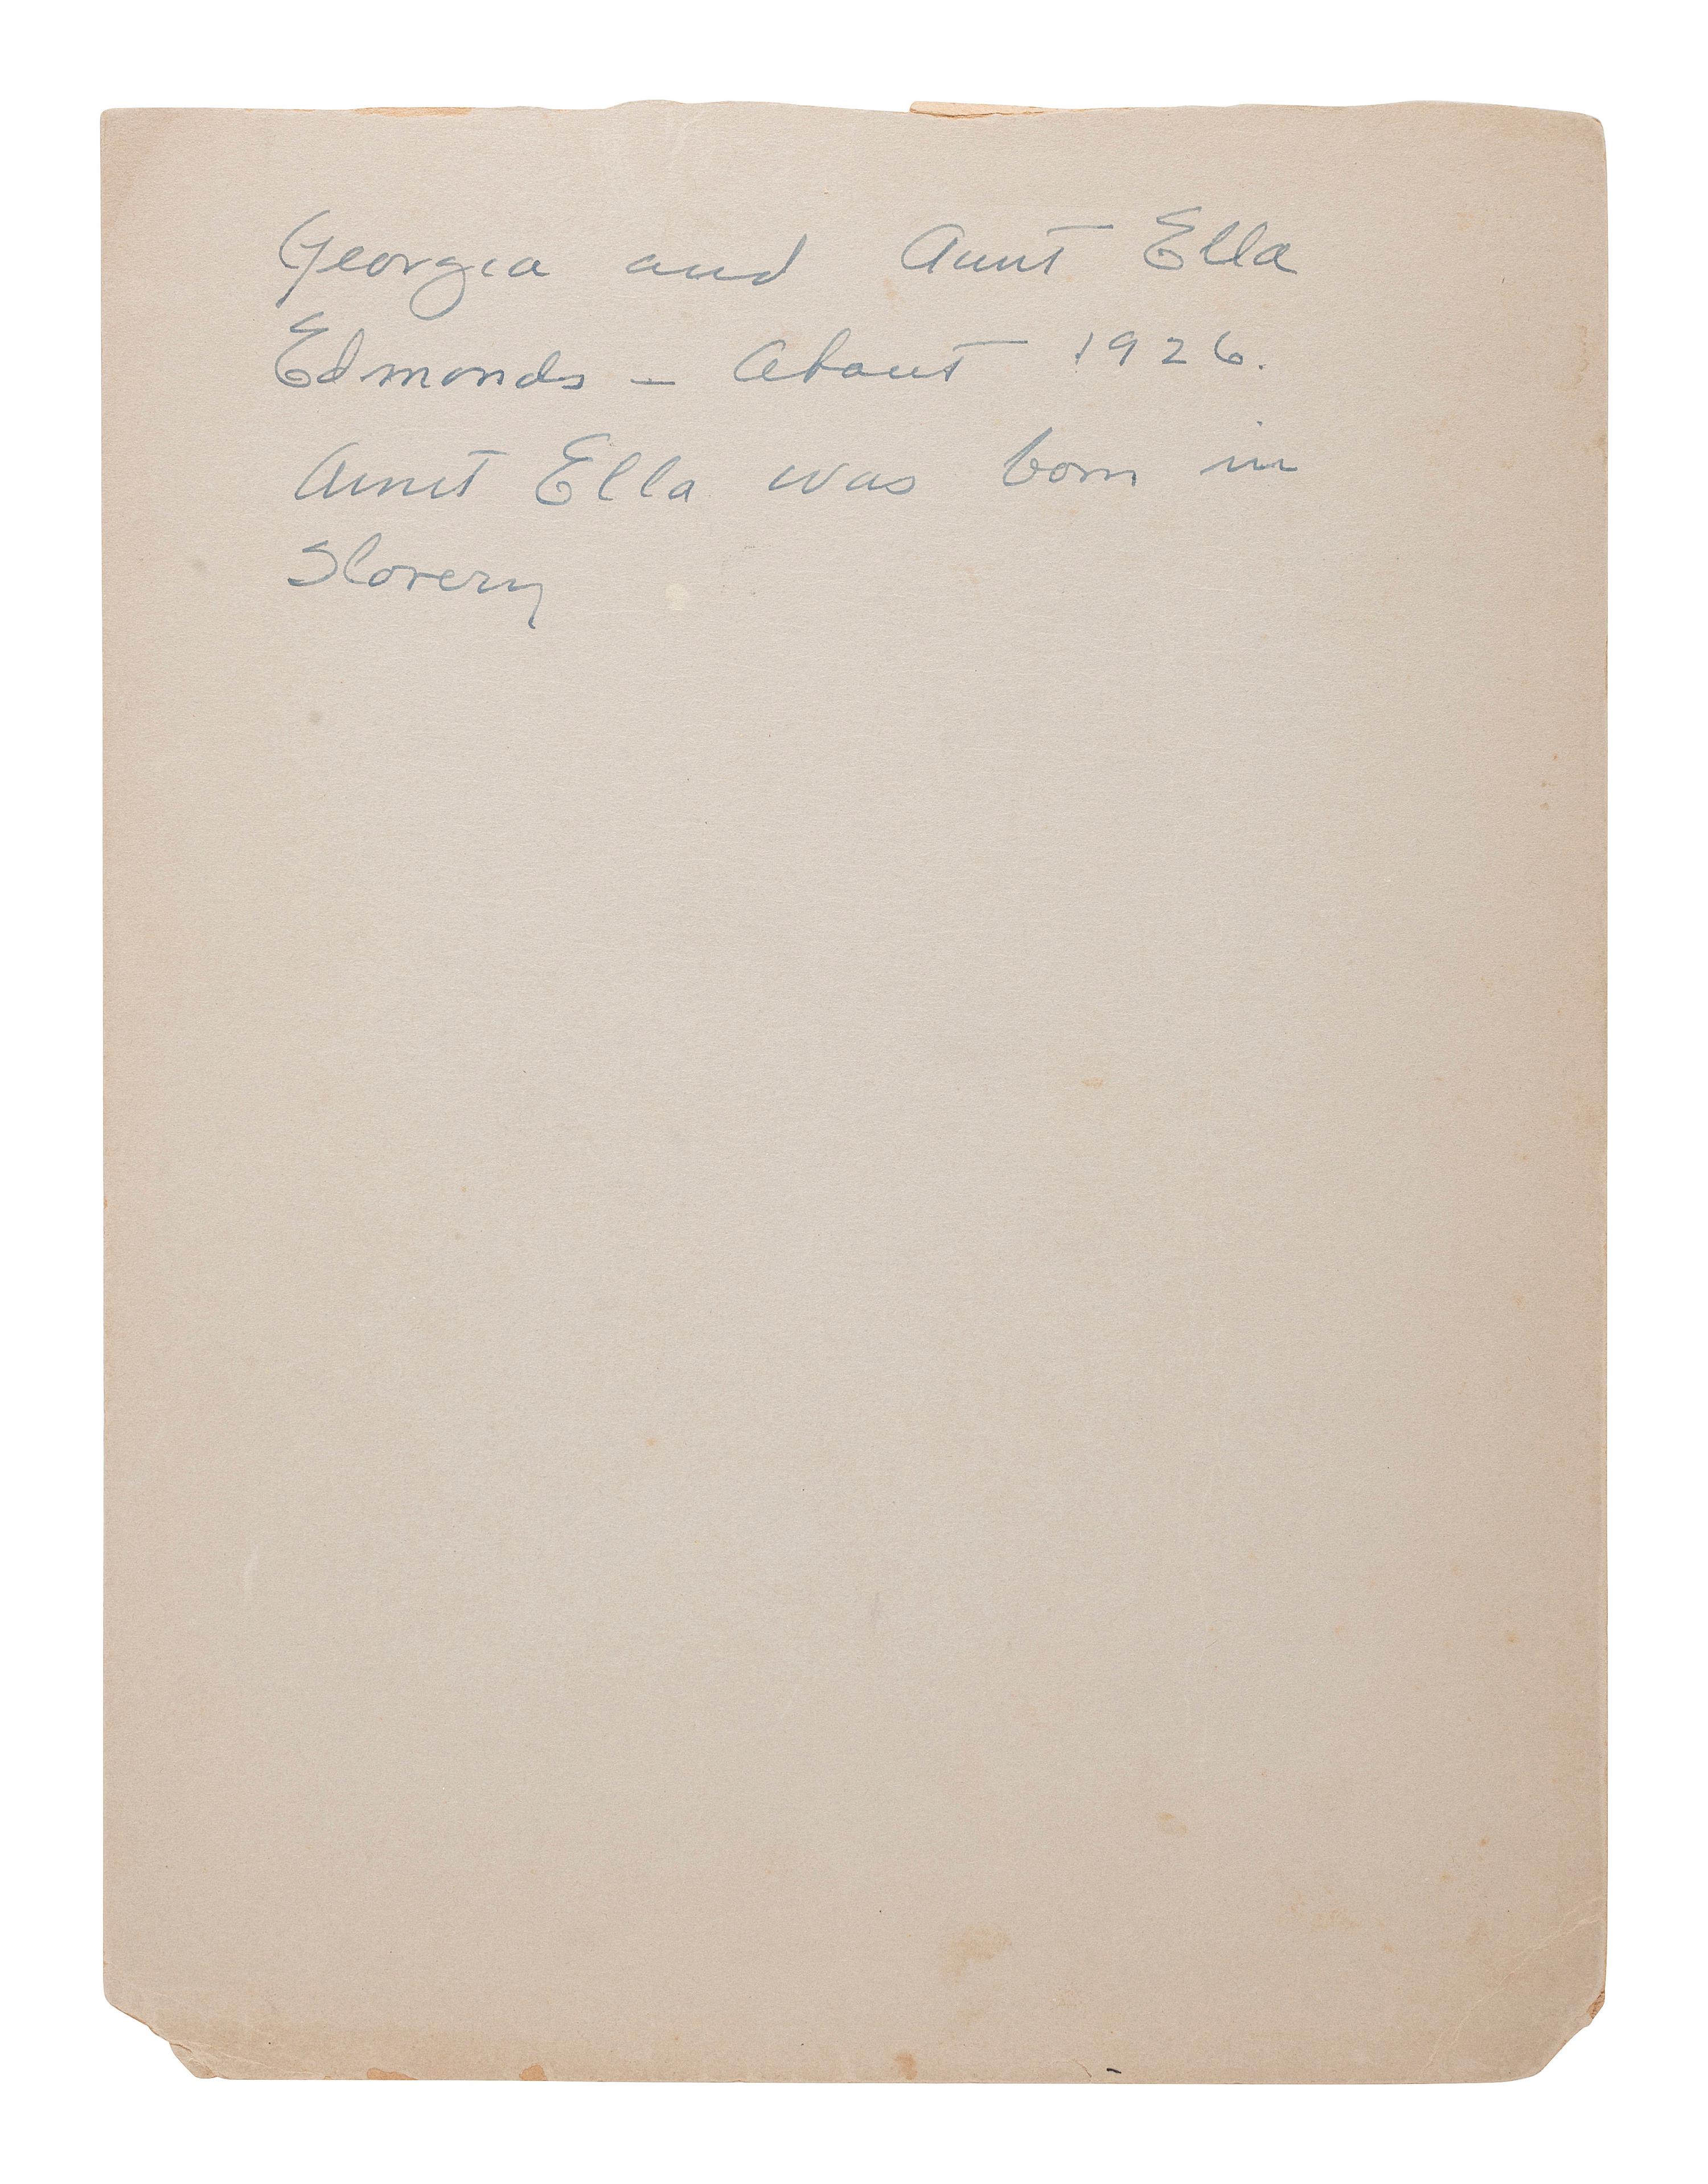 Georgia and Aunt Ella
Edmonds – About 1926.
Aunt Ella was born in
Slavery